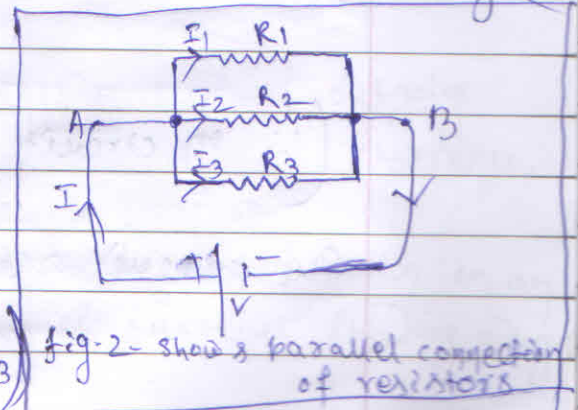 I1 R1
I2 R2
A B
I3 R3
I
+ -
V
3)
fig-2- shows parallel connection
of resistors